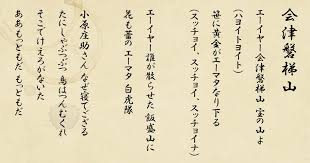 会津磐梯山
エーイヤー会津磐梯山 宝の山よ
(ハヨイトヨイト)
笹に黄金がエーマタなり下る
(スッチョイ、スッチョイ、スッチョイナ)
エーイヤー誰が散らせた 飯盛山に
花も蕾の エーマタ 白虎隊
小原庄助さん なぜ寝てござる
たにしゃぶつぶつ 鳥はつんむくれ
そこてけえろがないた
ああもっともだ もっともだ